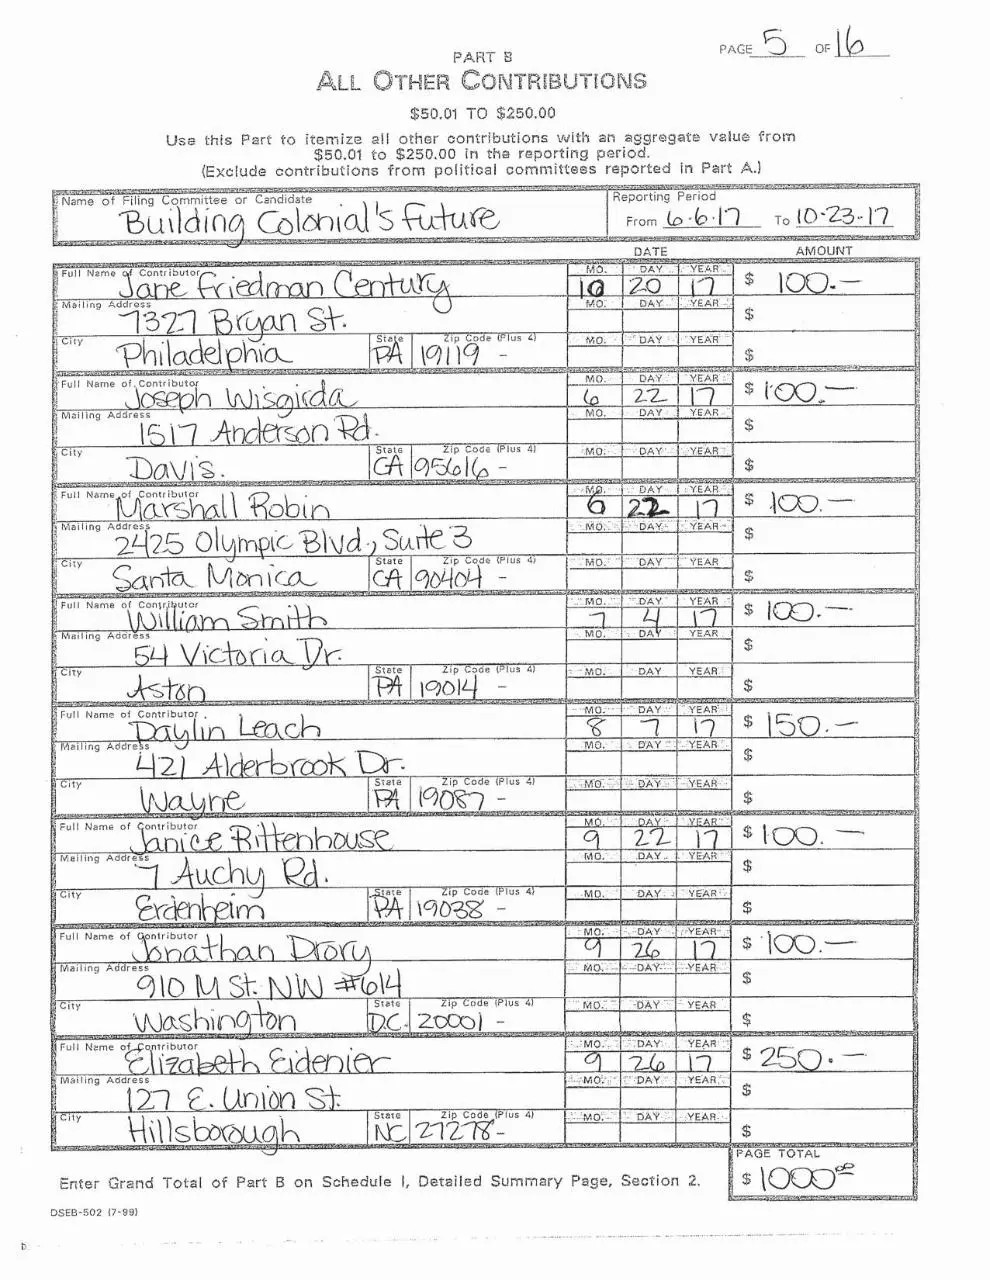 PAGE 5 OF 16
PART B
ALL OTHER CONTRIBUTIONS
$50.01 TO $250.00
Use this Part to itemize all other contributions with an aggregate value from
$50.01 to $250.00 in the reporting period.
(Exclude contributions from political committees reported in Part A.)
Name of Filing Committee or Candidate Reporting Period
Building Colonial's Future From 6-6-17 To 10-23-17
DATE AMOUNT
Full Name of Contributor MO. DAY YEAR
Jane Friedman Century 10 20 17 $ 100.—
Mailing Address MO. DAY YEAR
7327 Bryan St. $
City State Zip Code (Plus 4) MO. DAY YEAR
Philadelphia PA 19119 - $
Full Name of Contributor MO. DAY YEAR
Joseph Wisgirda 6 22 17 $ 100.—
Mailing Address MO. DAY YEAR
1517 Anderson Rd. $
City State Zip Code (Plus 4) MO. DAY YEAR
Davis. CA 95616 - $
Full Name of Contributor MO. DAY YEAR
Marshall Robin 6 22 17 $ 100.—
Mailing Address MO. DAY YEAR
2425 Olympic Blvd., Suite 3 $
City State Zip Code (Plus 4) MO. DAY YEAR
Santa Monica CA 90404 - $
Full Name of Contributor MO. DAY YEAR
William Smith 7 4 17 $ 100.—
Mailing Address MO. DAY YEAR
54 Victoria Dr. $
City State Zip Code (Plus 4) MO. DAY YEAR
Aston PA 19014 - $
Full Name of Contributor MO. DAY YEAR
Daylin Leach 8 7 17 $ 150.—
Mailing Address MO. DAY YEAR
421 Alderbrook Dr. $
City State Zip Code (Plus 4) MO. DAY YEAR
Wayne PA 19087 - $
Full Name of Contributor MO. DAY YEAR
Janice Rittenhouse 9 22 17 $ 100.—
Mailing Address MO. DAY YEAR
7 Auchy Rd. $
City State Zip Code (Plus 4) MO. DAY YEAR
Erdenheim PA 19038 - $
Full Name of Contributor MO. DAY YEAR
Jonathan Drory 9 26 17 $ 100.—
Mailing Address MO. DAY YEAR
910 M St. NW #614 $
City State Zip Code (Plus 4) MO. DAY YEAR
Washington D.C. 20001 - $
Full Name of Contributor MO. DAY YEAR
Elizabeth Eidenier 9 26 17 $ 250.—
Mailing Address MO. DAY YEAR
127 E. Union St. $
City State Zip Code (Plus 4) MO. DAY YEAR
Hillsborough NC 27278 - $
PAGE TOTAL
Enter Grand Total of Part B on Schedule I, Detailed Summary Page, Section 2. $ 1000.00
DSEB-502 (7-99)